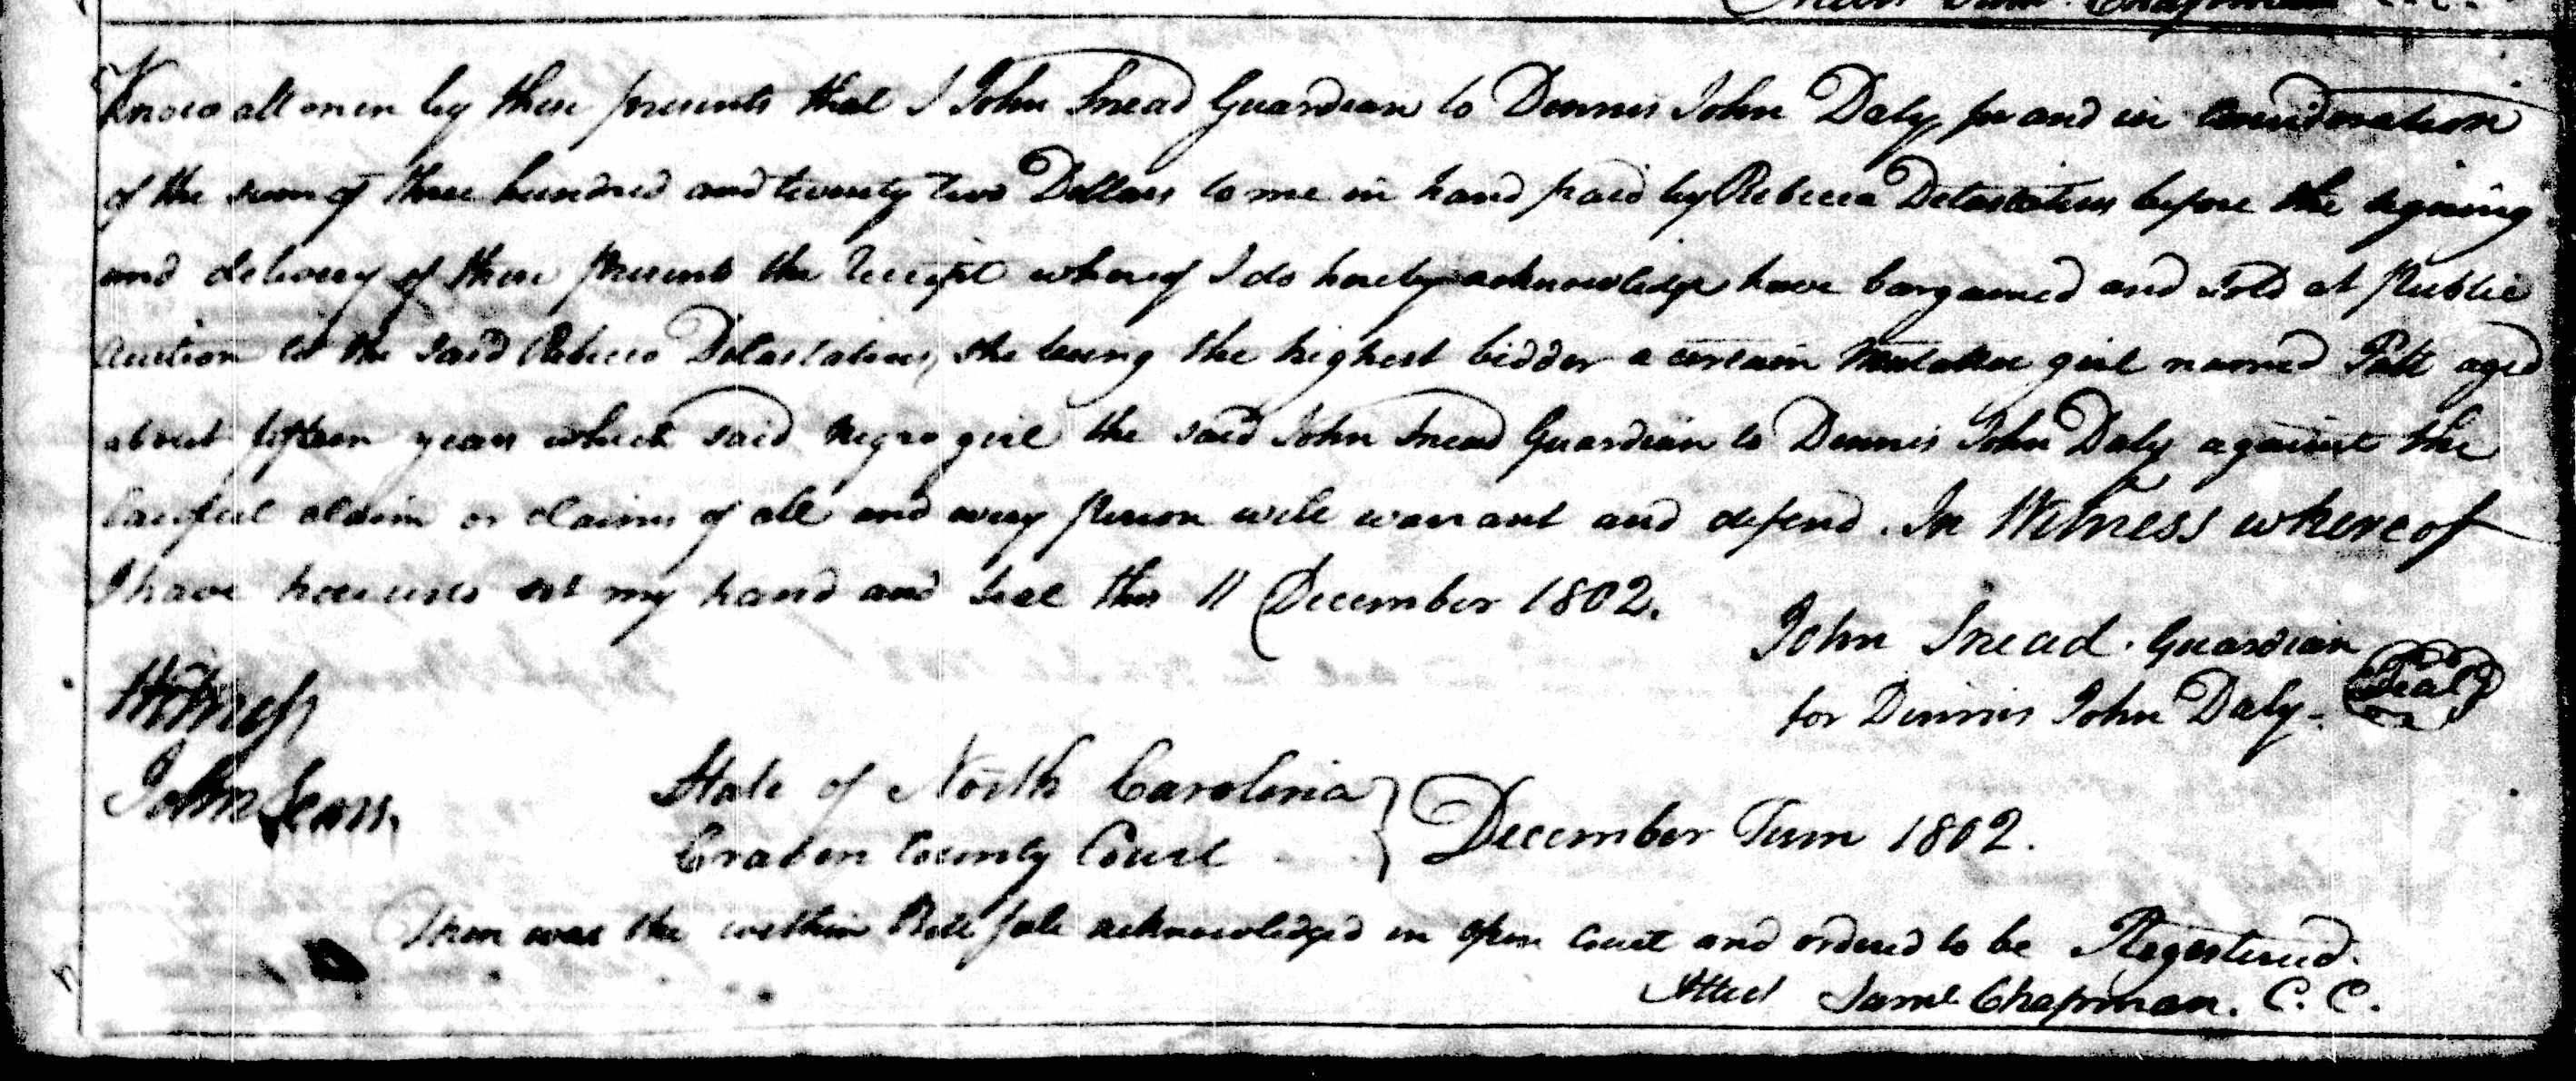 Attest Saml. Chapman C. C.
Know all men by these presents that I John Snead Guardian to Dennis John Daly for and in Consideration
of the sum of three hundred and twenty two Dollars to me in hand paid by Rebecca Delastatius before the signing
and delivery of these presents the receipt whereof I do hereby acknowledge have bargained and sold at Public
Auction to the said Rebecca Delastatius, she being the highest bidder a certain Mulattoe girl named Patt aged
about fifteen years which said Negro girl the said John Snead Guardian to Dennis John Daly against the
lawful claim or claims of all and every person will warrant and defend. In Witness whereof
I have hereunto set my hand and seal this 11 December 1802.
John Snead. Guardian
for Dennis John Daly- Seal
Witness
John Sears.
State of North Carolina } December Term 1802.
Craven County Court
Then was the within Bill Sale acknowledged in open Court and ordered to be Registered.
Attest Saml. Chapman. C. C.